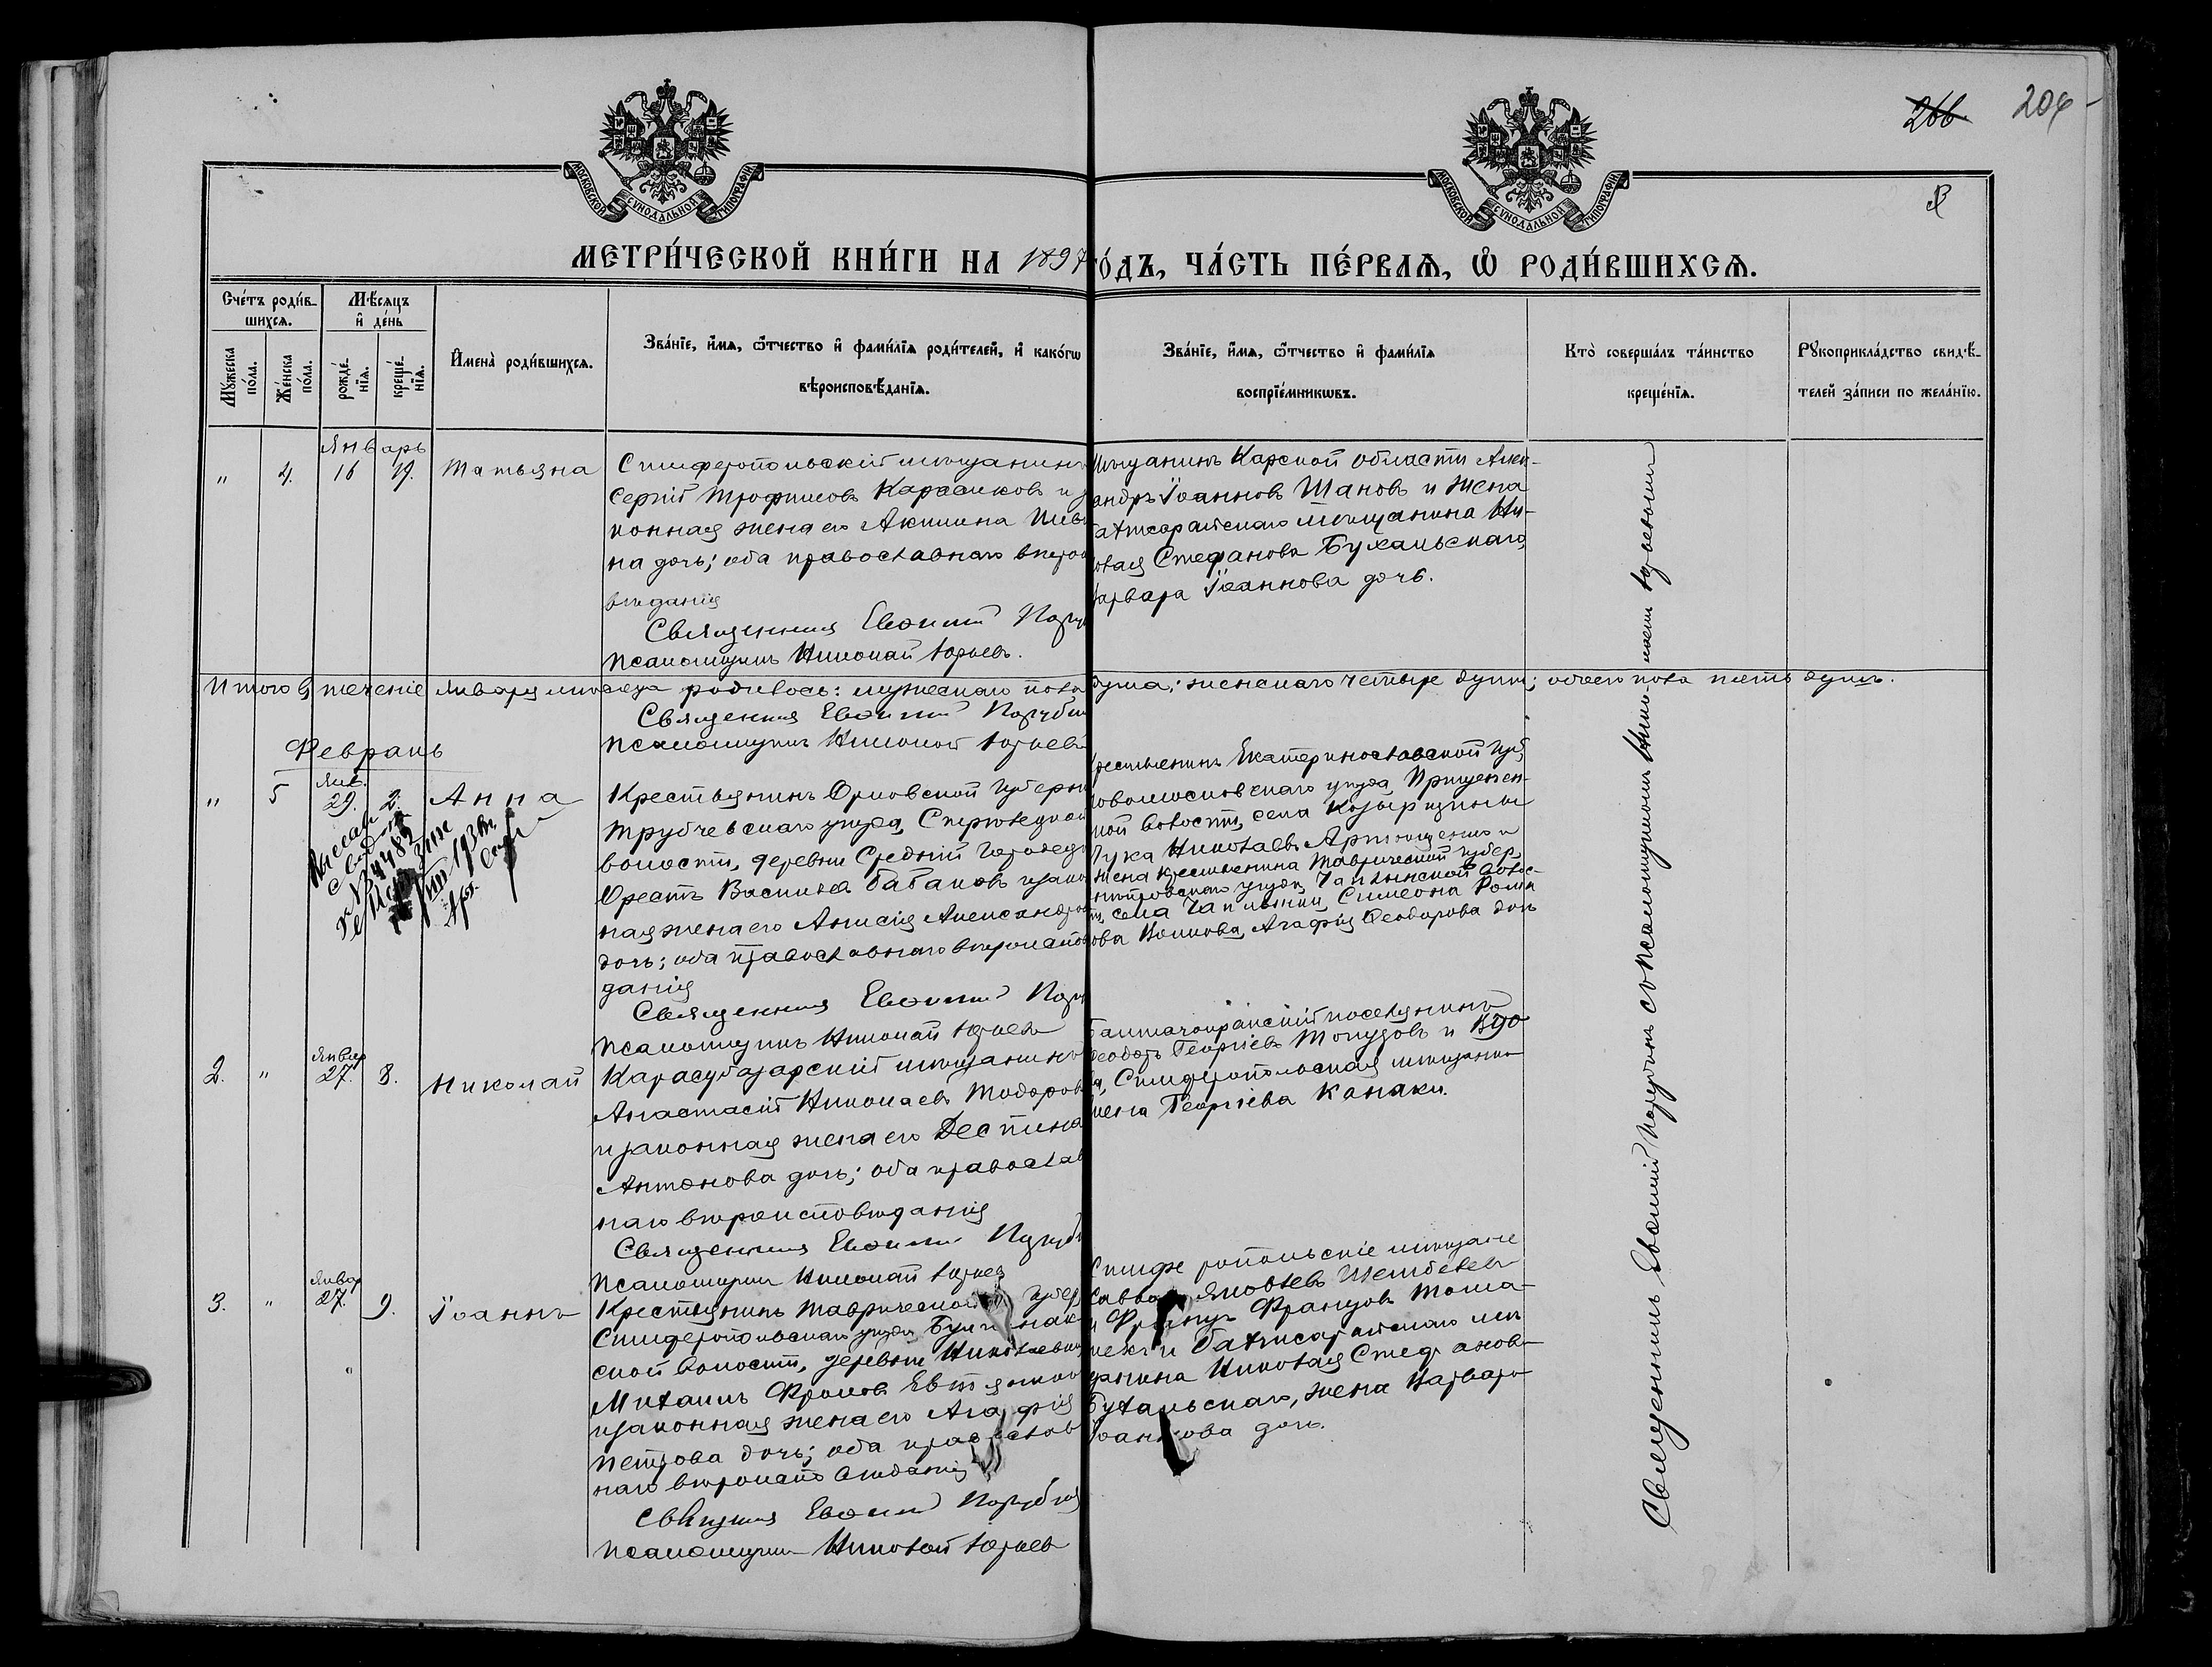 266. 204
МОСКОВСКОЙ СѴНОДАЛЬНОЙ ТИПОГРАФІИ
МОСКОВСКОЙ СѴНОДАЛЬНОЙ ТИПОГРАФІИ
МЕТРИ́ЧЕСКОЙ КНИ́ГИ НА 1897 ГО́ДЪ, ЧА́СТЬ ПЕ́РВАѦ, Ѡ РОДИ́ВШИХСѦ.
Сче́тъ роди́в-
шихсѧ.
Мꙋжеска
по́ла.
Же́нска
по́ла.
Мѣ́сѧцъ
и҆ де́нь
рожде́-
нїѧ.
креще́-
нїѧ.
И҆мена̀ роди́вшихсѧ.
Зва́нїе, и҆́мѧ, ѻ҆́тчество и҆ фами́лїѧ роди́телей, и҆ како́гѡ
вѣроисповѣ́данїѧ.
Зва́нїе, и҆́мѧ, ѻ҆́тчество и҆ фами́лїѧ
воспрїе́мникѡвъ.
Кто̀ соверша́лъ та́инство
креще́нїѧ.
Рꙋкоприкла́дство свидѣ́-
телей за́писи по жела́нїю.
Январь
" 4. 16 19. Татьяна
Симферопольскій мѣщанинъ
Сергій Трофимовъ Карасиковъ и
конная жена его Акилина
на дочь; оба православнаго вѣроис
вѣданія
Священникъ Евѳимій
Псаломщикъ Николай Юрьевъ.
Мѣщанинъ Карской области Алек-
андръ Іоанновъ Шановъ и жена
ахчисарайскаго мѣщанина Ни-
олая Стефанова Бухальскаго,
арвара Іоаннова дочь.
Итого въ теченіе Января мѣсяца родилось: мужескаго пола душа; женскаго четыре души; обоего пола пять душъ.
Священникъ Евѳимій
Псаломщикъ Николай Юрьевъ
Февраль
" 5 Янв. 29. 2. Анна
Крестьянинъ Орловской губерн
Трубчевскаго уѣзда,
волости, деревни Средній Городец
Орестъ Васильевъ Бабаковъ и зако
ная жена его Анисія Александров
дочь; оба православнаго вѣроиспов
данія
Священникъ Евѳимій
Псаломщикъ Николай Юрьевъ
рестьянинъ Екатеринославской губ,
овомосковскаго уѣзда,
ной волости, села
Лука Николаевъ Артющенко и
жена крестьянина Таврической губер,
уѣзда, Чаплынской волос-
ти, села Чаплынки, Симеона Рома
ова Агафія Ѳеодорова дочь
2. " Январ 27. 8. Николай
Карасубазарскій мѣщанинъ
Анастасій Николаевъ Тодоров
и законная жена его Деспина
Антонова дочь; оба православ
наго вѣроисповѣданія
Священникъ Евѳимій
Псаломщикъ Николай Юрьевъ
поселянинъ
еодоръ Георгіевъ Топузовъ и вдо
ва, Симферопольская мѣщанка
лена Георгіева Канаки.
3. " Январ 27. 9. Іоаннъ
Крестьянинъ Таврической губер
Симферопольскаго уѣзда
ской волости, деревни Николаевки
Михаилъ Фроловъ
и законная жена его Агафія
Петрова дочь; оба православ
наго вѣроисповѣданія
Священникъ Евѳимій
Псаломщикъ Николай Юрьевъ
Симферопольскіе мѣщане
Савва Яковлевъ
и Францъ Францовъ Тома-
шекъ и Бахчисарайскаго мѣ
щанина Николая Стефанова
Бухальскаго, жена Варвара
Іоаннова дочь.
Священникъ Евѳимій съ псаломщикомъ Нико-лаемъ Юрьевымъ